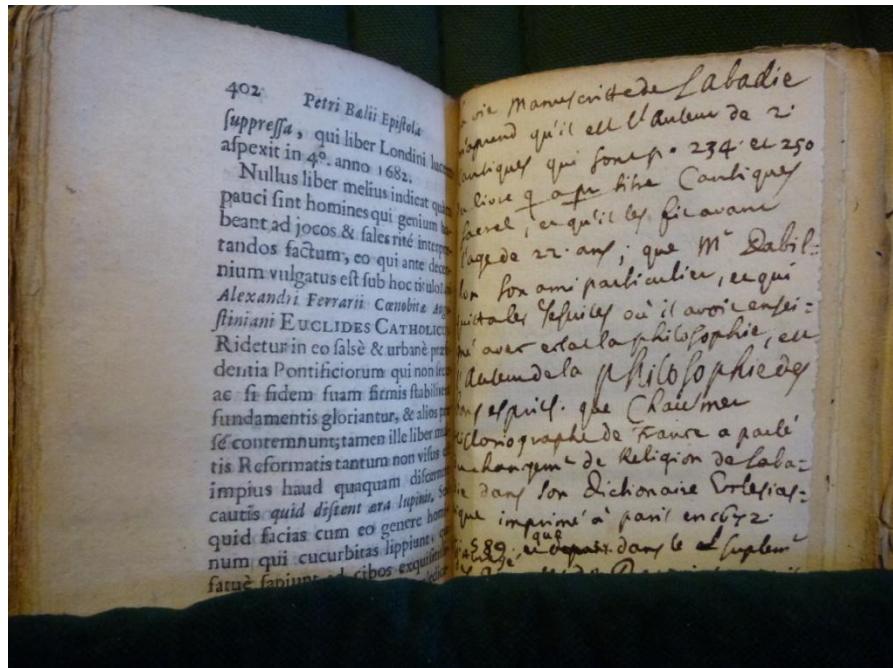 402 Petri Bælii Epistola
suppressa, qui liber Londini lucem
aspexit in 4°. anno 1682.
Nullus liber melius indicat quàm
pauci sint homines qui genium
beant ad jocos & sales rité interpre-
tandos factum, eo qui ante decen-
nium vulgatus est sub hoc titulo
Alexandri Ferrarii Cœnobitæ Augu-
stiniani EUCLIDES CATHOLICUS
Ridetur in eo salsè & urbanè
dentia Pontificiorum qui non
ac si fidem suam firmis
fundamentis gloriantur, & alios
sé contemnunt; tamen ille liber
tis Reformatis tantum non visus
impius haud quaquam
cautis quid distent æra lupinis,
quid facias cum eo genere
num qui cucurbitas lippiunt,
fatuè sapiunt ad cibos
vie Manuscritte de Labadie
qu'il est l'Auteur de 2
qui sont p. 234 et 250
livre q a pr titre Cantiques
Sacrez, et qu'il les fit avant
l'age de 22 ans; que Mr Dabil=
lon son ami particulier, et qui
quitta les Jesuites où il avoit ensei=
né avec eclat la philosophie, est
l'Auteur de la philosophie des
bons esprits. que Chaumer
historiographe de France a parlé
changemt de Religion de Laba=
die dans son Dictionaire Ecclesias=
que imprimé à paris en 1672
589 que dans le supplemt